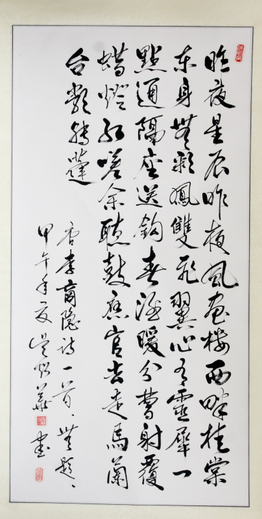 昨夜星辰昨夜風畫樓西畔桂棠
東身無彩鳳雙飛翼心有靈犀一
點通隔座送鈎春酒暖分曹射覆
蠟燈紅嗟余聽鼓應官去走馬蘭
台類轉蓬
唐李商隱詩一首無題
甲午年夏華書